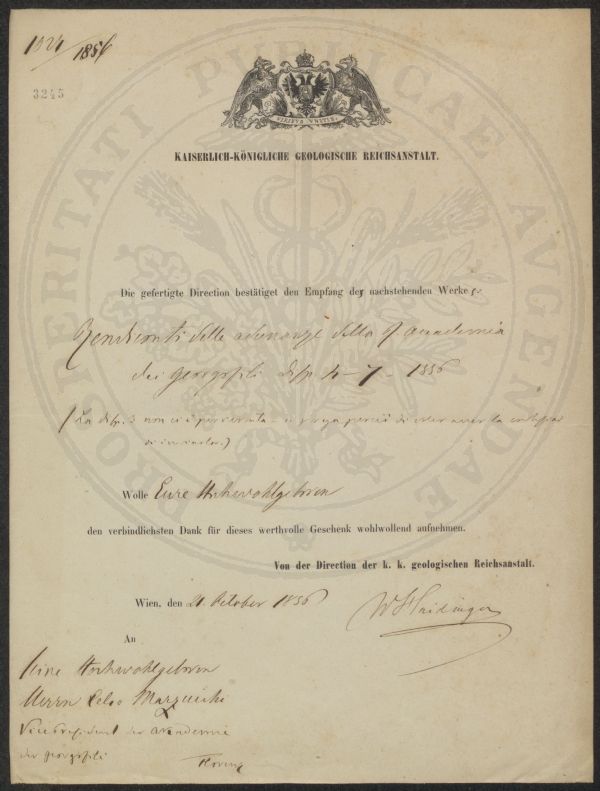 1021/1856
3245
VIRIBUS UNITIS
KAISERLICH-KÖNIGLICHE GEOLOGISCHE REICHSANSTALT.
PROSPERITATI PUBLICAE AUGENDAE
Die gefertigte Direction bestätiget den Empfang der nachstehenden Werke
Rendiconti delle adunanze della R Accademia
dei Georgofili disp. 4-7 1856
(La disp. 3 non ci è pervenuta - si prega perciò di voler aver la
di inviarla.)
Wolle Eure Hochwohlgeboren
den verbindlichsten Dank für dieses werthvolle Geschenk wohlwollend aufnehmen.
Von der Direction der k. k. geologischen Reichsanstalt.
Wien, den 21. October 1856
W Haidinger
An
Seine Hochwohlgeboren
Herrn Celso Marzucchi
Vicepresident der Akademie
der Georgofili
Florenz